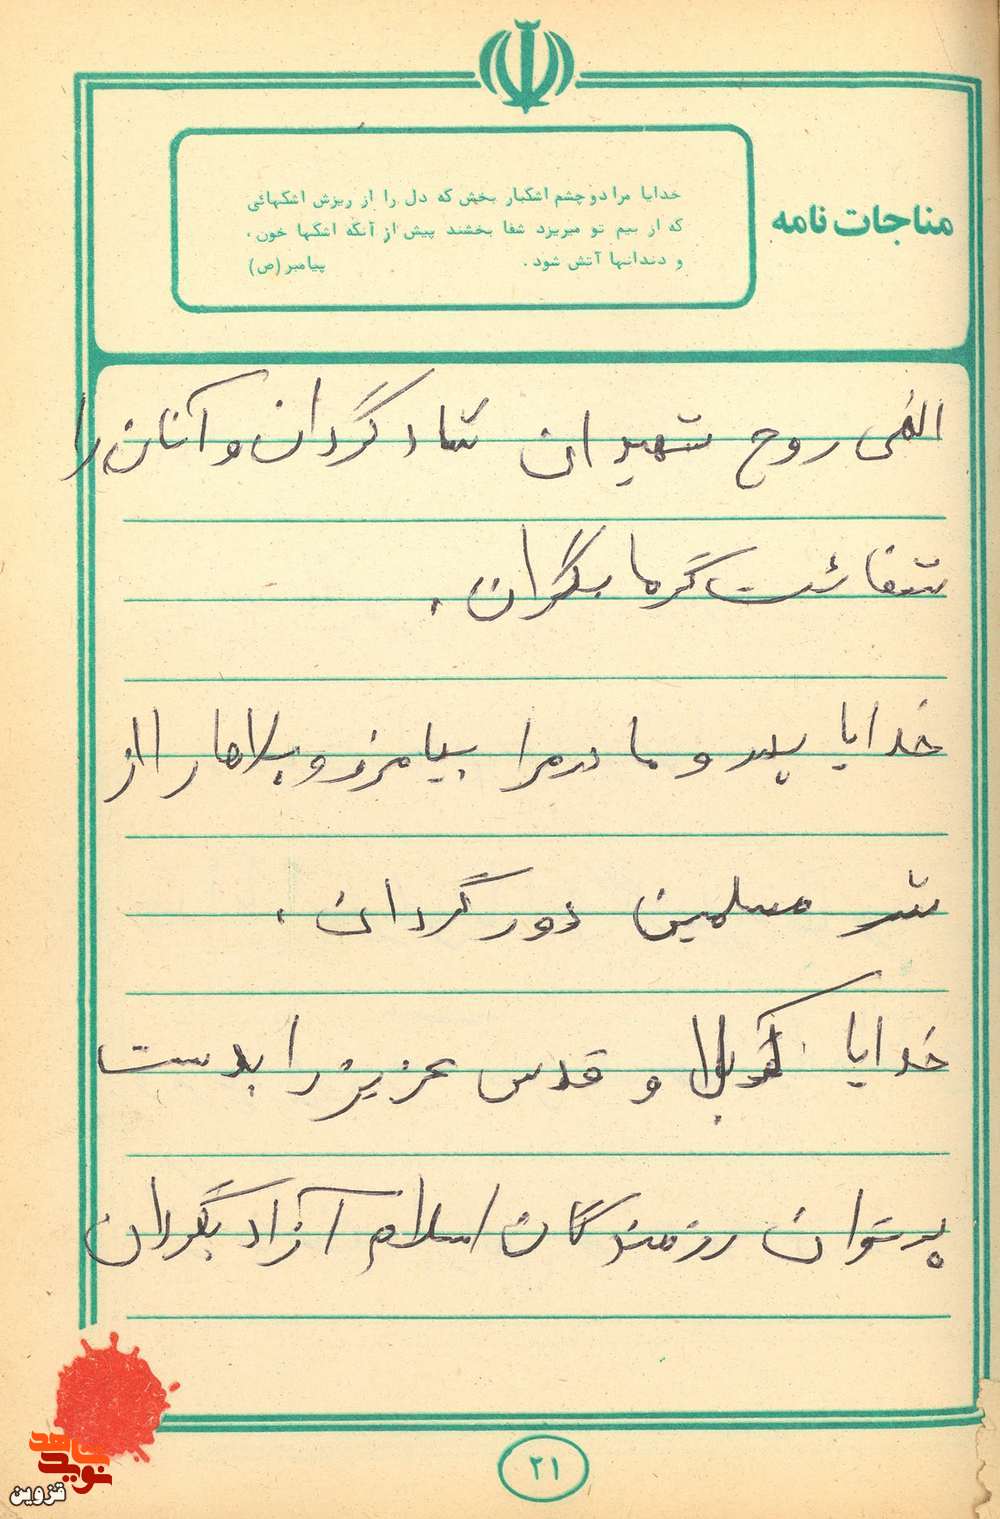 مناجات نامه
خدایا مرا دو چشم اشکبار بخش که دل را از ریزش اشکهائی
که از بیم تو میریزد شفا بخشند پیش از آنکه اشکها خون،
و دندانها آتش شود. پیامبر (ص)
الهی روح شهیدان شاد گردان و آنان را
شفائت گر ما بگران.
خدایا پدر و مادر مرا بیامرز و بلاها را از
سر مسلمین دور گردان.
خدایا کربلا و قدس عزیز را بدست
پرتوان رزمندگان اسلام آزاد بگردان
۲۱
نوید شاهد
قزوین